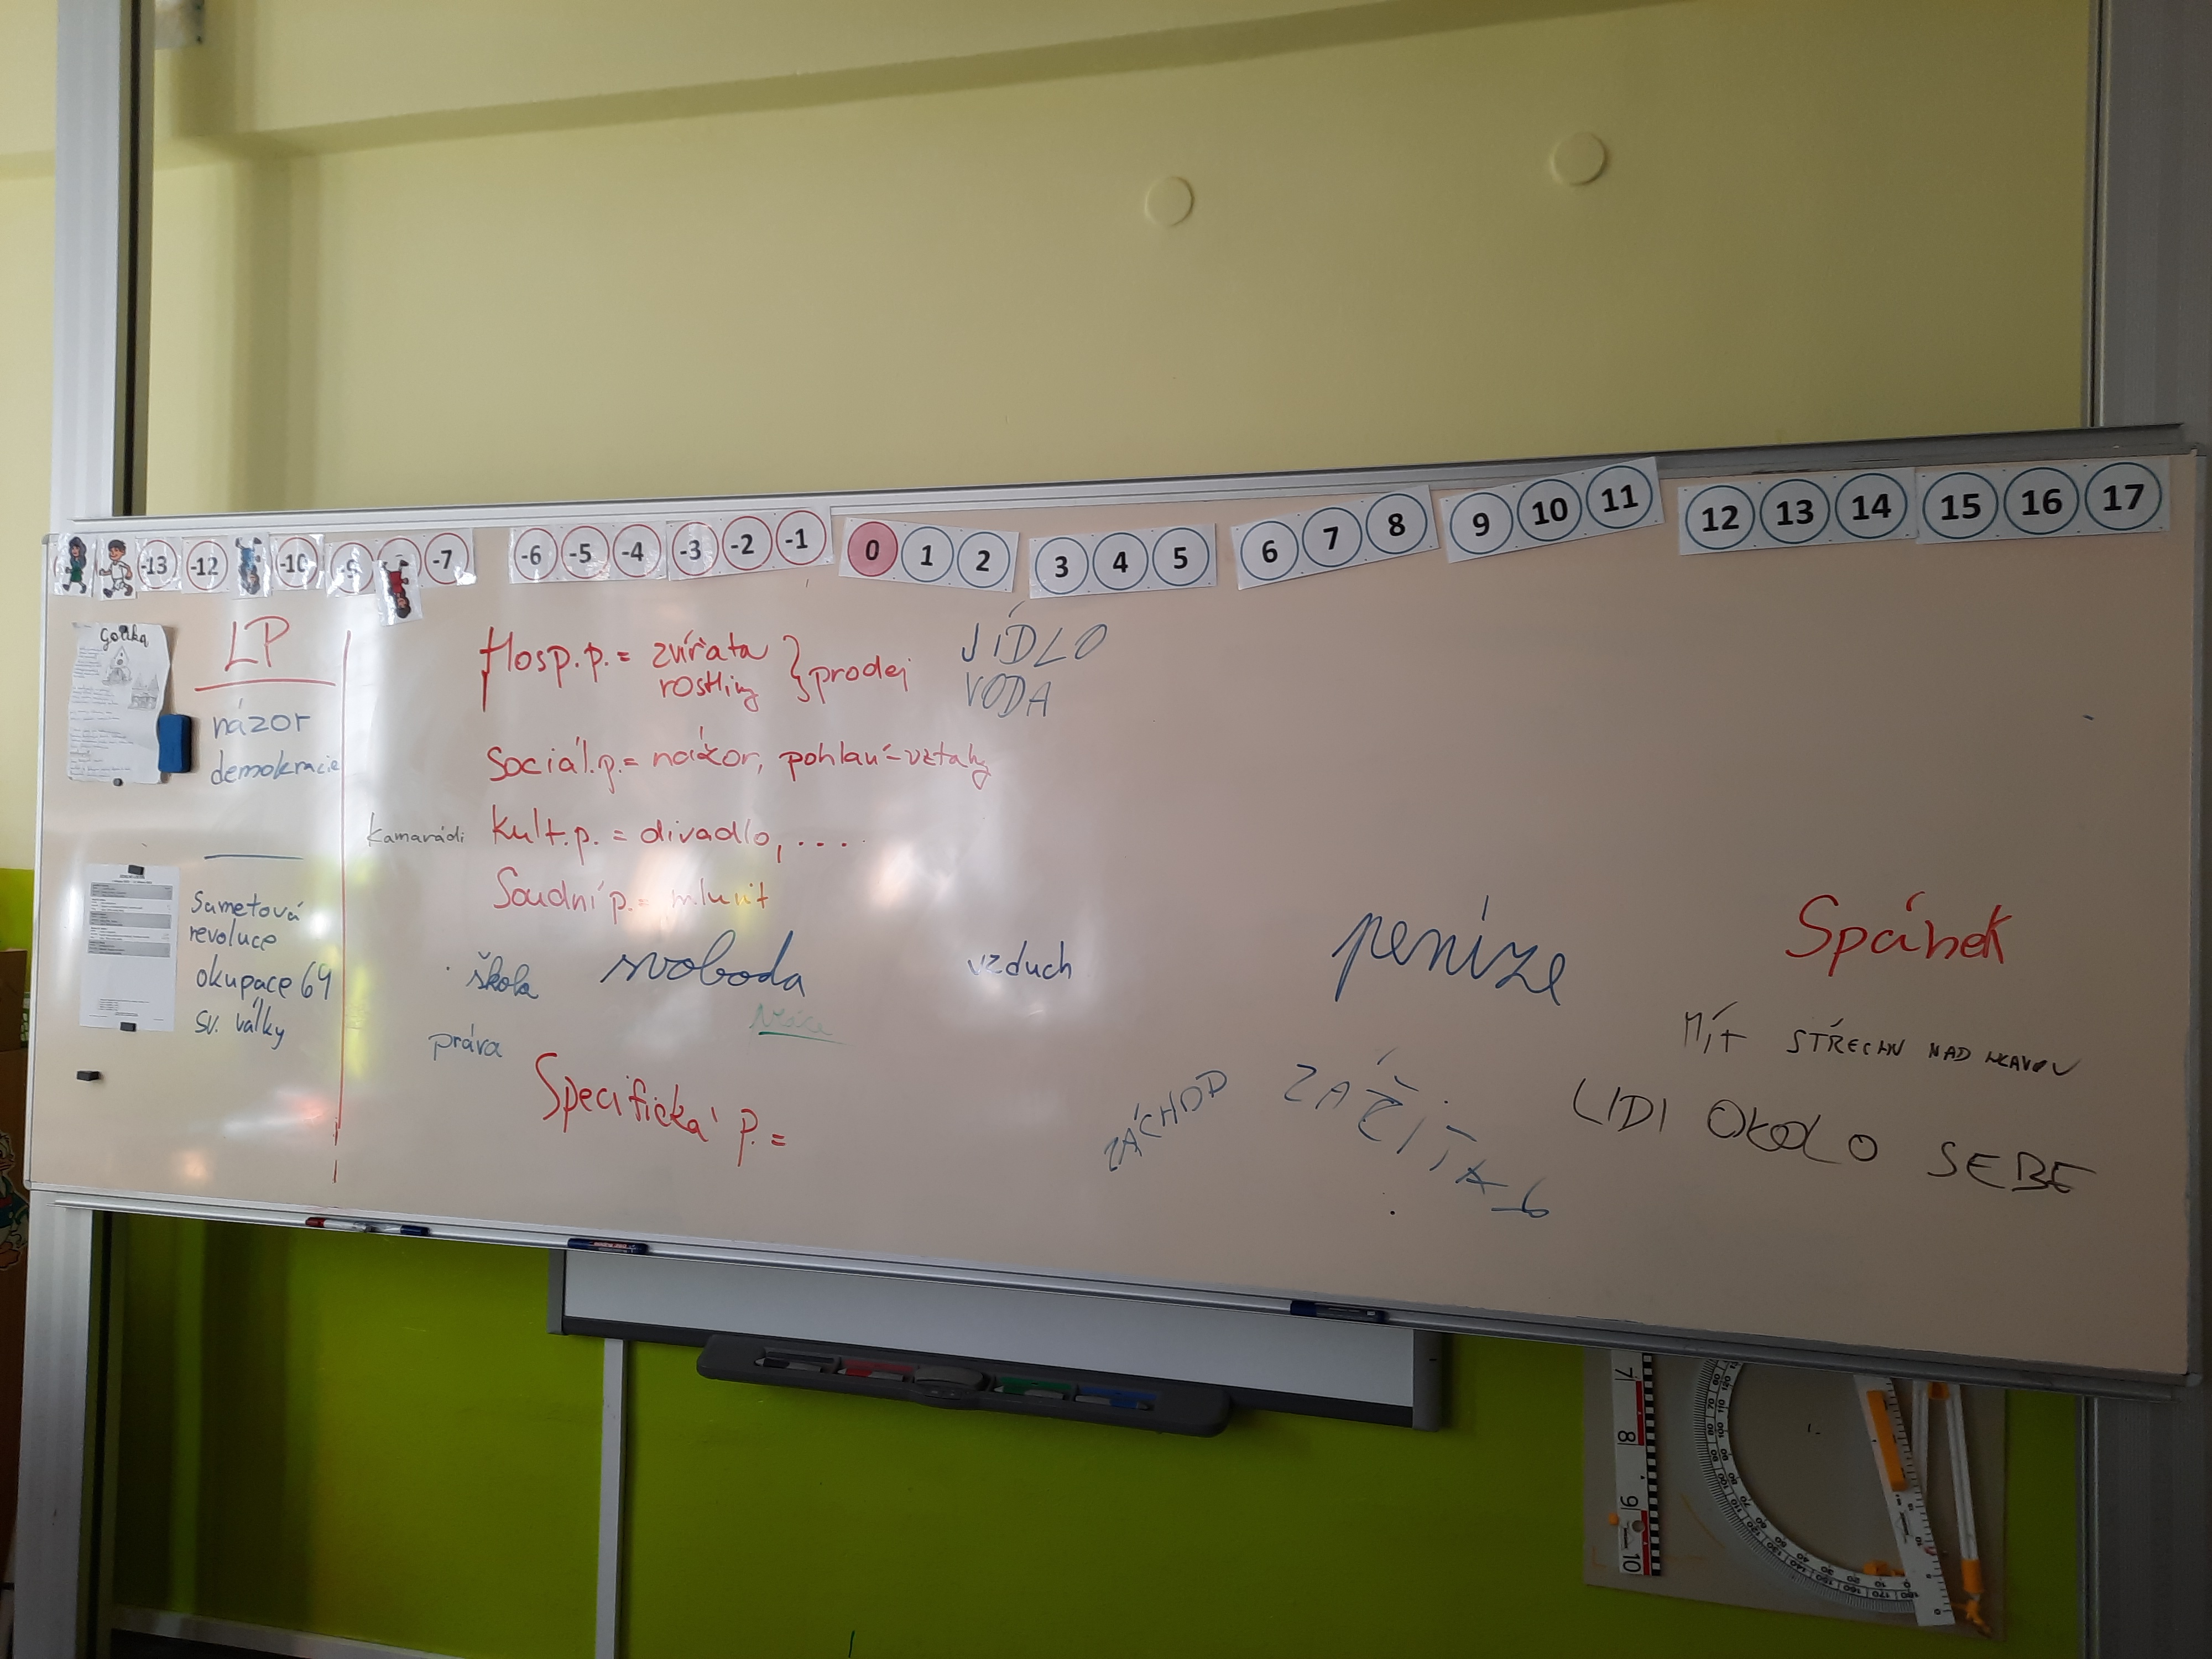 -13 -12 -10 -9 -7 -6 -5 -4 -3 -2 -1 0 1 2 3 4 5 6 7 8 9 10 11 12 13 14 15 16 17
Gotika
LP
názor
demokracie
Sametová
revoluce
okupace 69
sv. války
Hosp. p. = zvířata
rostliny } prodej
JÍDLO
VODA
Sociál. p. = názor, pohlaví - vztahy
kamarádi
Kult. p. = divadlo, ....
Soudní p. = mluvit
škola
svoboda
vzduch
peníze
Spánek
práva
práce
Specifická p. =
ZÁCHOD
ZÁŽITKY
MÍT STŘECHU NAD HLAVOU
LIDI OKOLO SEBE
7
8
9
10